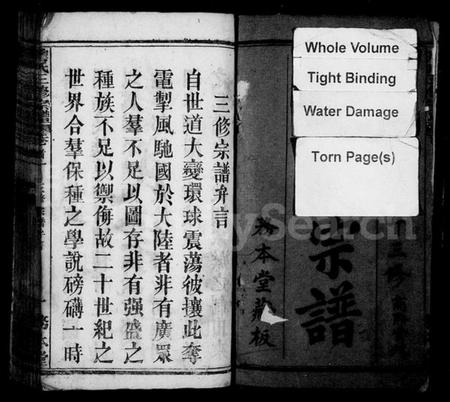 Whole Volume
Tight Binding
Water Damage
Torn Page(s)
三修
宗譜
務本堂藏板
三修宗譜弁言
自世道大變環球震蕩彼攘此奪
電掣風馳國於大陸者非有廣眾
之人羣不足以圖存非有强盛之
種族不足以禦侮故二十世紀之
世界合羣保種之學說磅礴一時